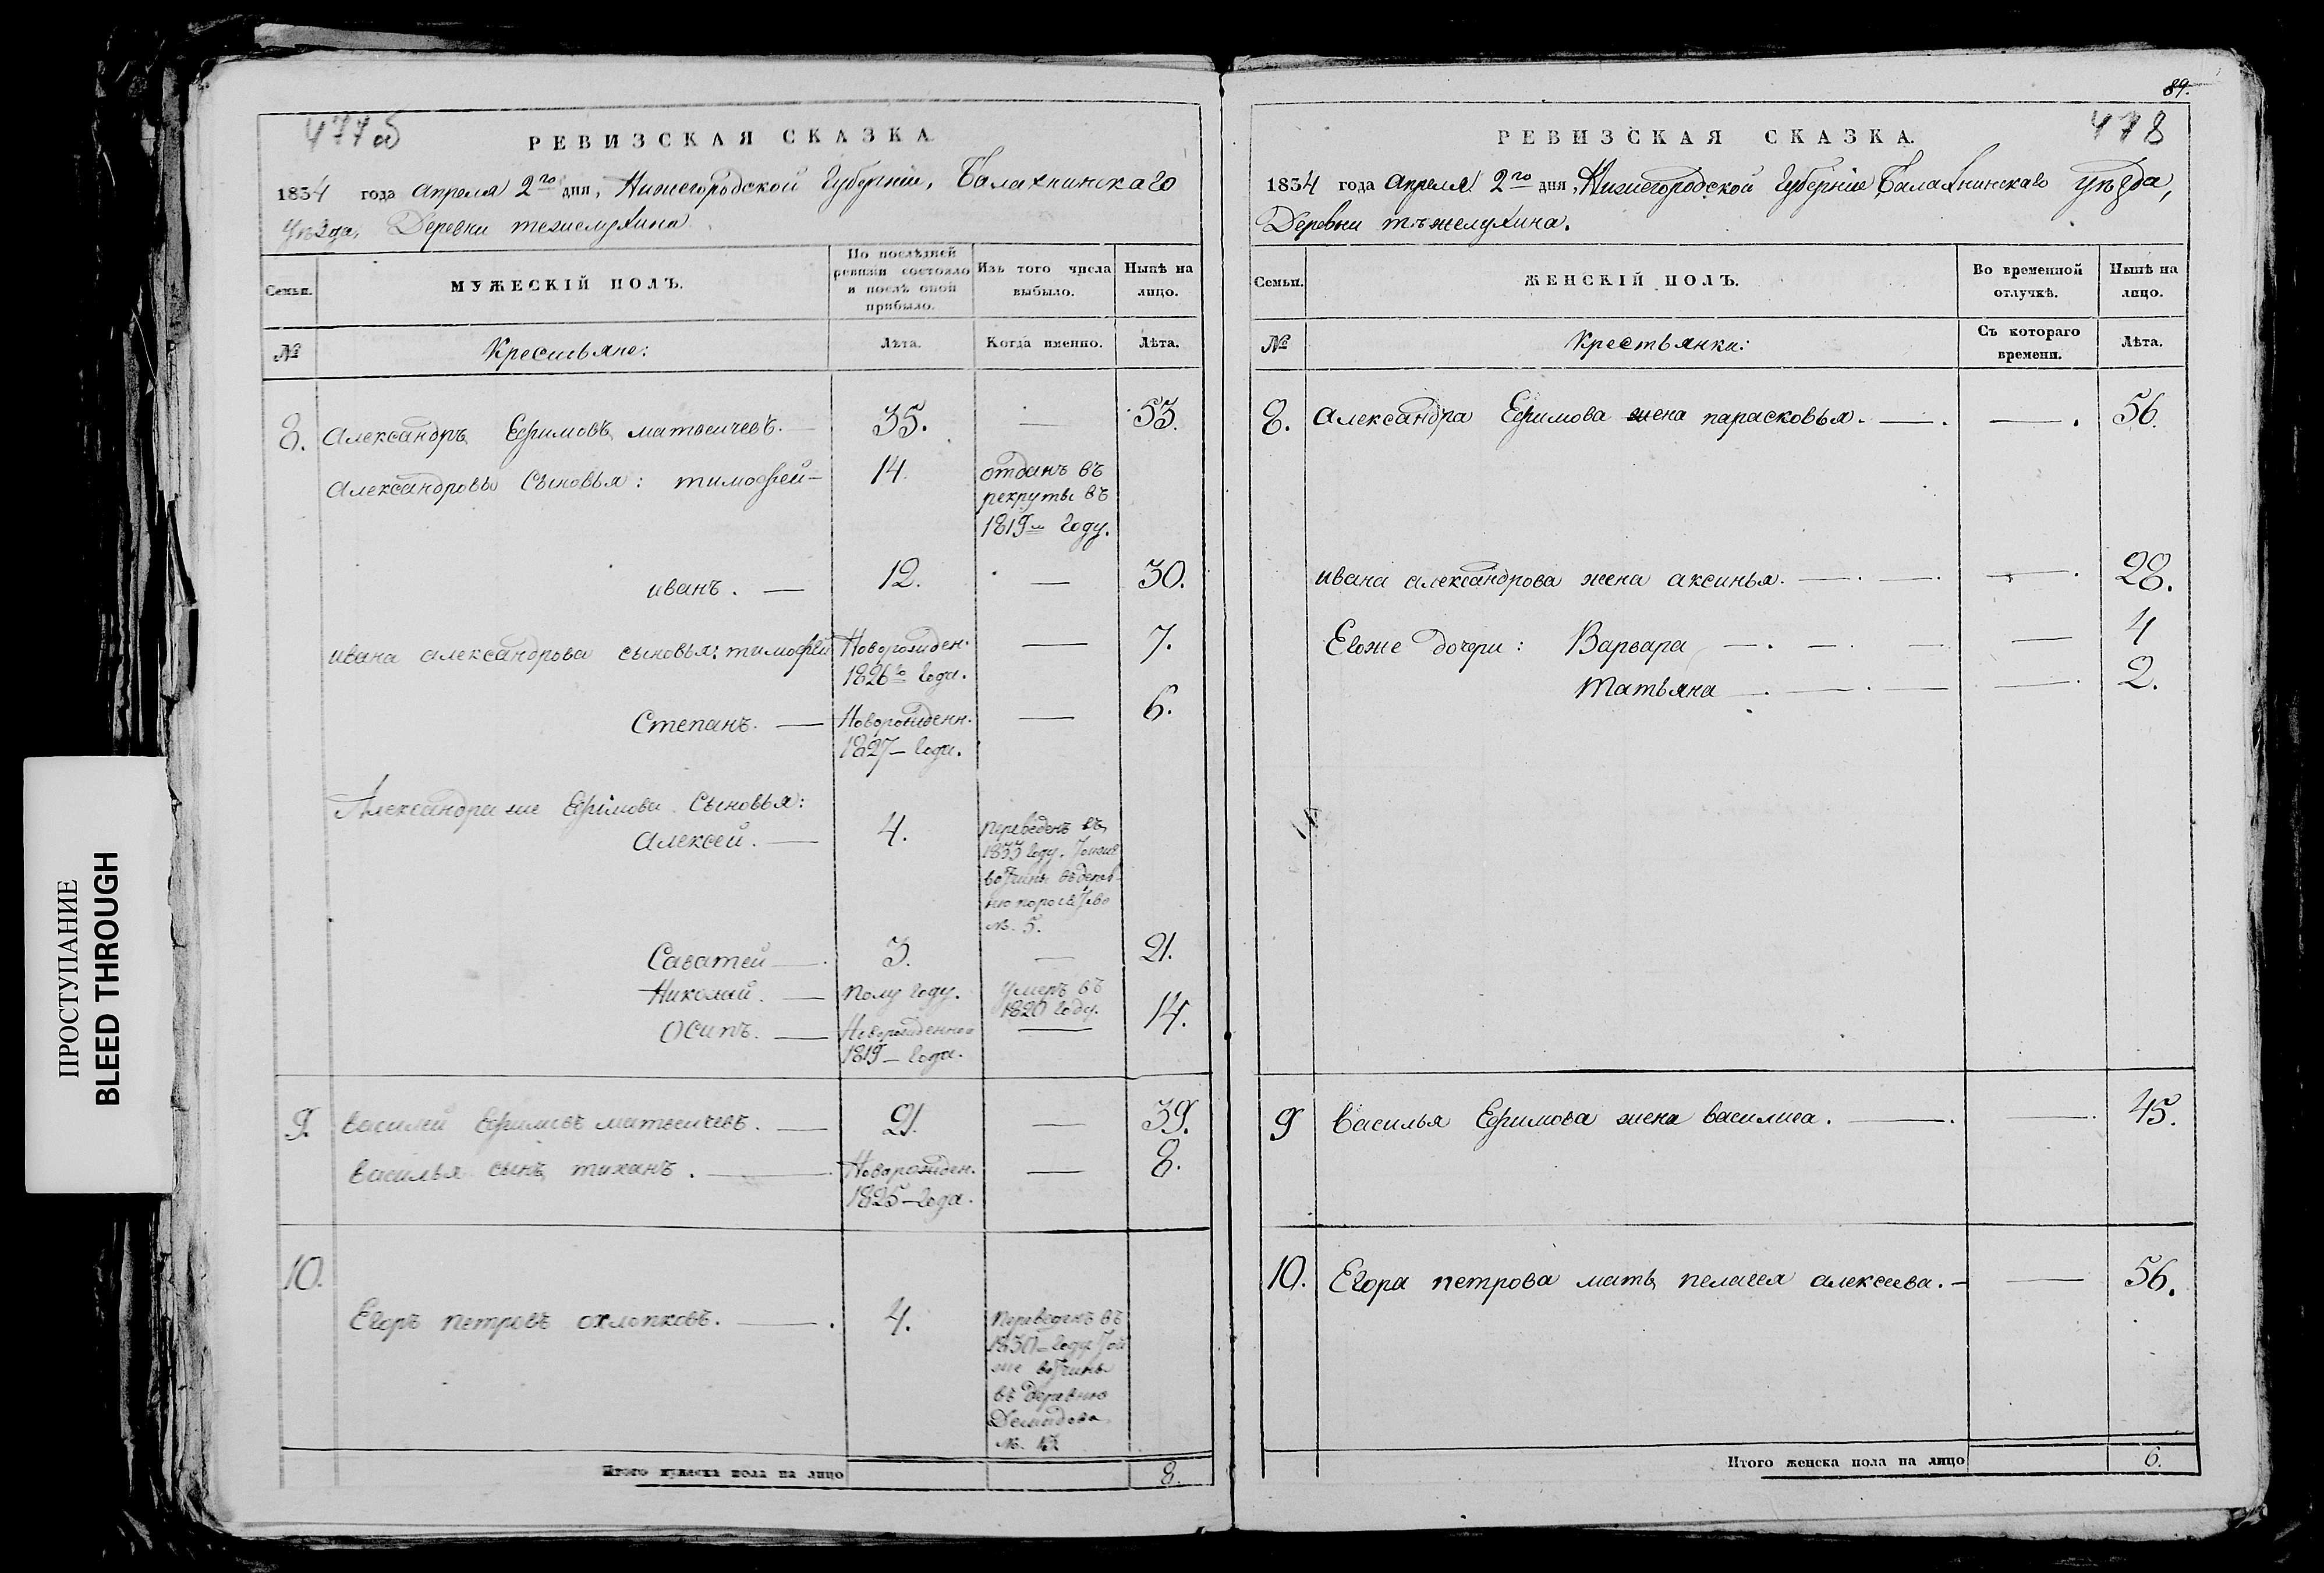 477 об
РЕВИЗСКАЯ СКАЗКА
1834 года апреля 2го дня, Нижегородской Губерніи, Балахнинскаго
уѣзда, Деревни тежелухина
Семьи.
МУЖЕСКІЙ ПОЛЪ.
По послѣдней ревизіи состояло и послѣ оной прибыло.
Изъ того числа выбыло.
Нынѣ на лицо.
№
Крестьяне:
Лѣта.
Когда именно.
Лѣта.
8. Александръ Ефимовъ матвеичевъ. — 35. — 53.
Александровы Сыновья: тимофей — 14. отданъ въ
рекруты въ
1819м Году.
иванъ. — 12. — 30.
ивана александрова сыновья: тимофей Новорожден. — 7.
1826го Года.
Степанъ. — Новорожденн. — 6.
1827 — Года.
Александра же Ефимова Сыновья:
Алексей. — 4. переведенъ въ
1833 Году. Тойже
вотчины въ дерев-
ню
№. 5.
Саватей — 3. — 21.
Николай. — полу году. умеръ въ
1820 Году.
Осипъ. — Новорожденной — 14.
1819 — Года.
9. василей Ефимовъ матвеичевъ. — 21. — 39.
василья сынъ тиханъ. — Новорожден. — 8.
1825 — Года.
10.
Егоръ петровъ охлопковъ. — 4. переведенъ въ
1830м Году Той
же вотчины
въ деревню
Демидова
№.
Итого мужеска пола на лицо 8.
89.
478
РЕВИЗСКАЯ СКАЗКА.
1834 года апреля 2го дня, Нижегородской Губерніи Балахнинскаго уѣзда,
Деревни тѣжелухина.
Семьи.
ЖЕНСКІЙ ПОЛЪ.
Во временной отлучкѣ.
Нынѣ на лицо.
№
Крестьянки:
Съ котораго времени.
Лѣта.
8. Александра Ефимова жена парасковья. — — 56.
ивана александрова жена аксинья. — — 28.
Евоже дочери: Варвара — — 4
Татьяна — — 2.
9 Василья Ефимова жена василиса. — — 45.
10. Егора петрова мать пелагея алексеева. — — 56.
Итого женска пола на лицо 6.
ПРОСТУПАНИЕ
BLEED THROUGH